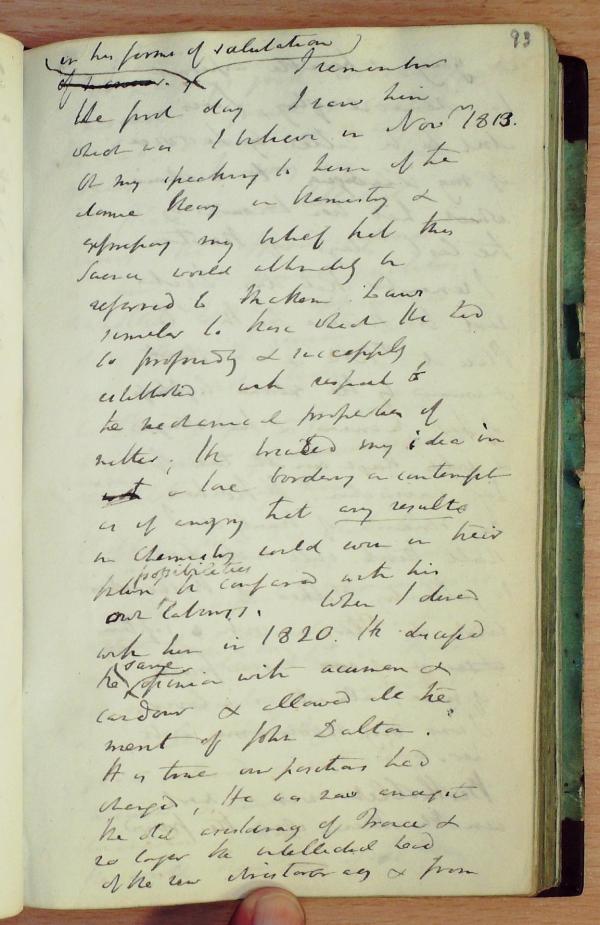 93
in his forms of salutation
of manner. I remember
the first day I saw him
which was I believe in Nov.r 1813.
On my speaking to him of the
atomic theory in Chemistry &
expressing my belief that this
Science would ultimately be
referred to Mathem. Laws
similar to those which He had
so profoundly & successfully
established with respect to
the mechanical properties of
matter; He treated my idea in
a tone bordering on contempt
as if angry that any results
in Chemistry could even in their
future possibilities be compared with his
own labours. When I dined
with him in 1820. He discussed
the same opinion with acumen &
candour & allowed all the
merit of John Dalton.
It is true our positions had
changed, He was now amongst
the old aristocracy of France &
no longer the intellectual head
of the new aristocracy & from